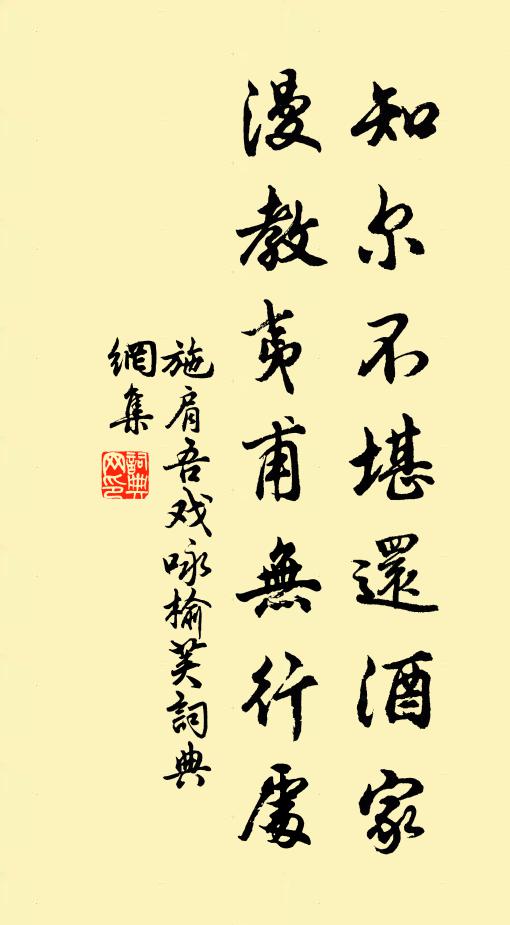 知尔不堪還酒家
漫教夷甫無行處
施肩吾戏咏榆荚詞典
網集
詞典網印